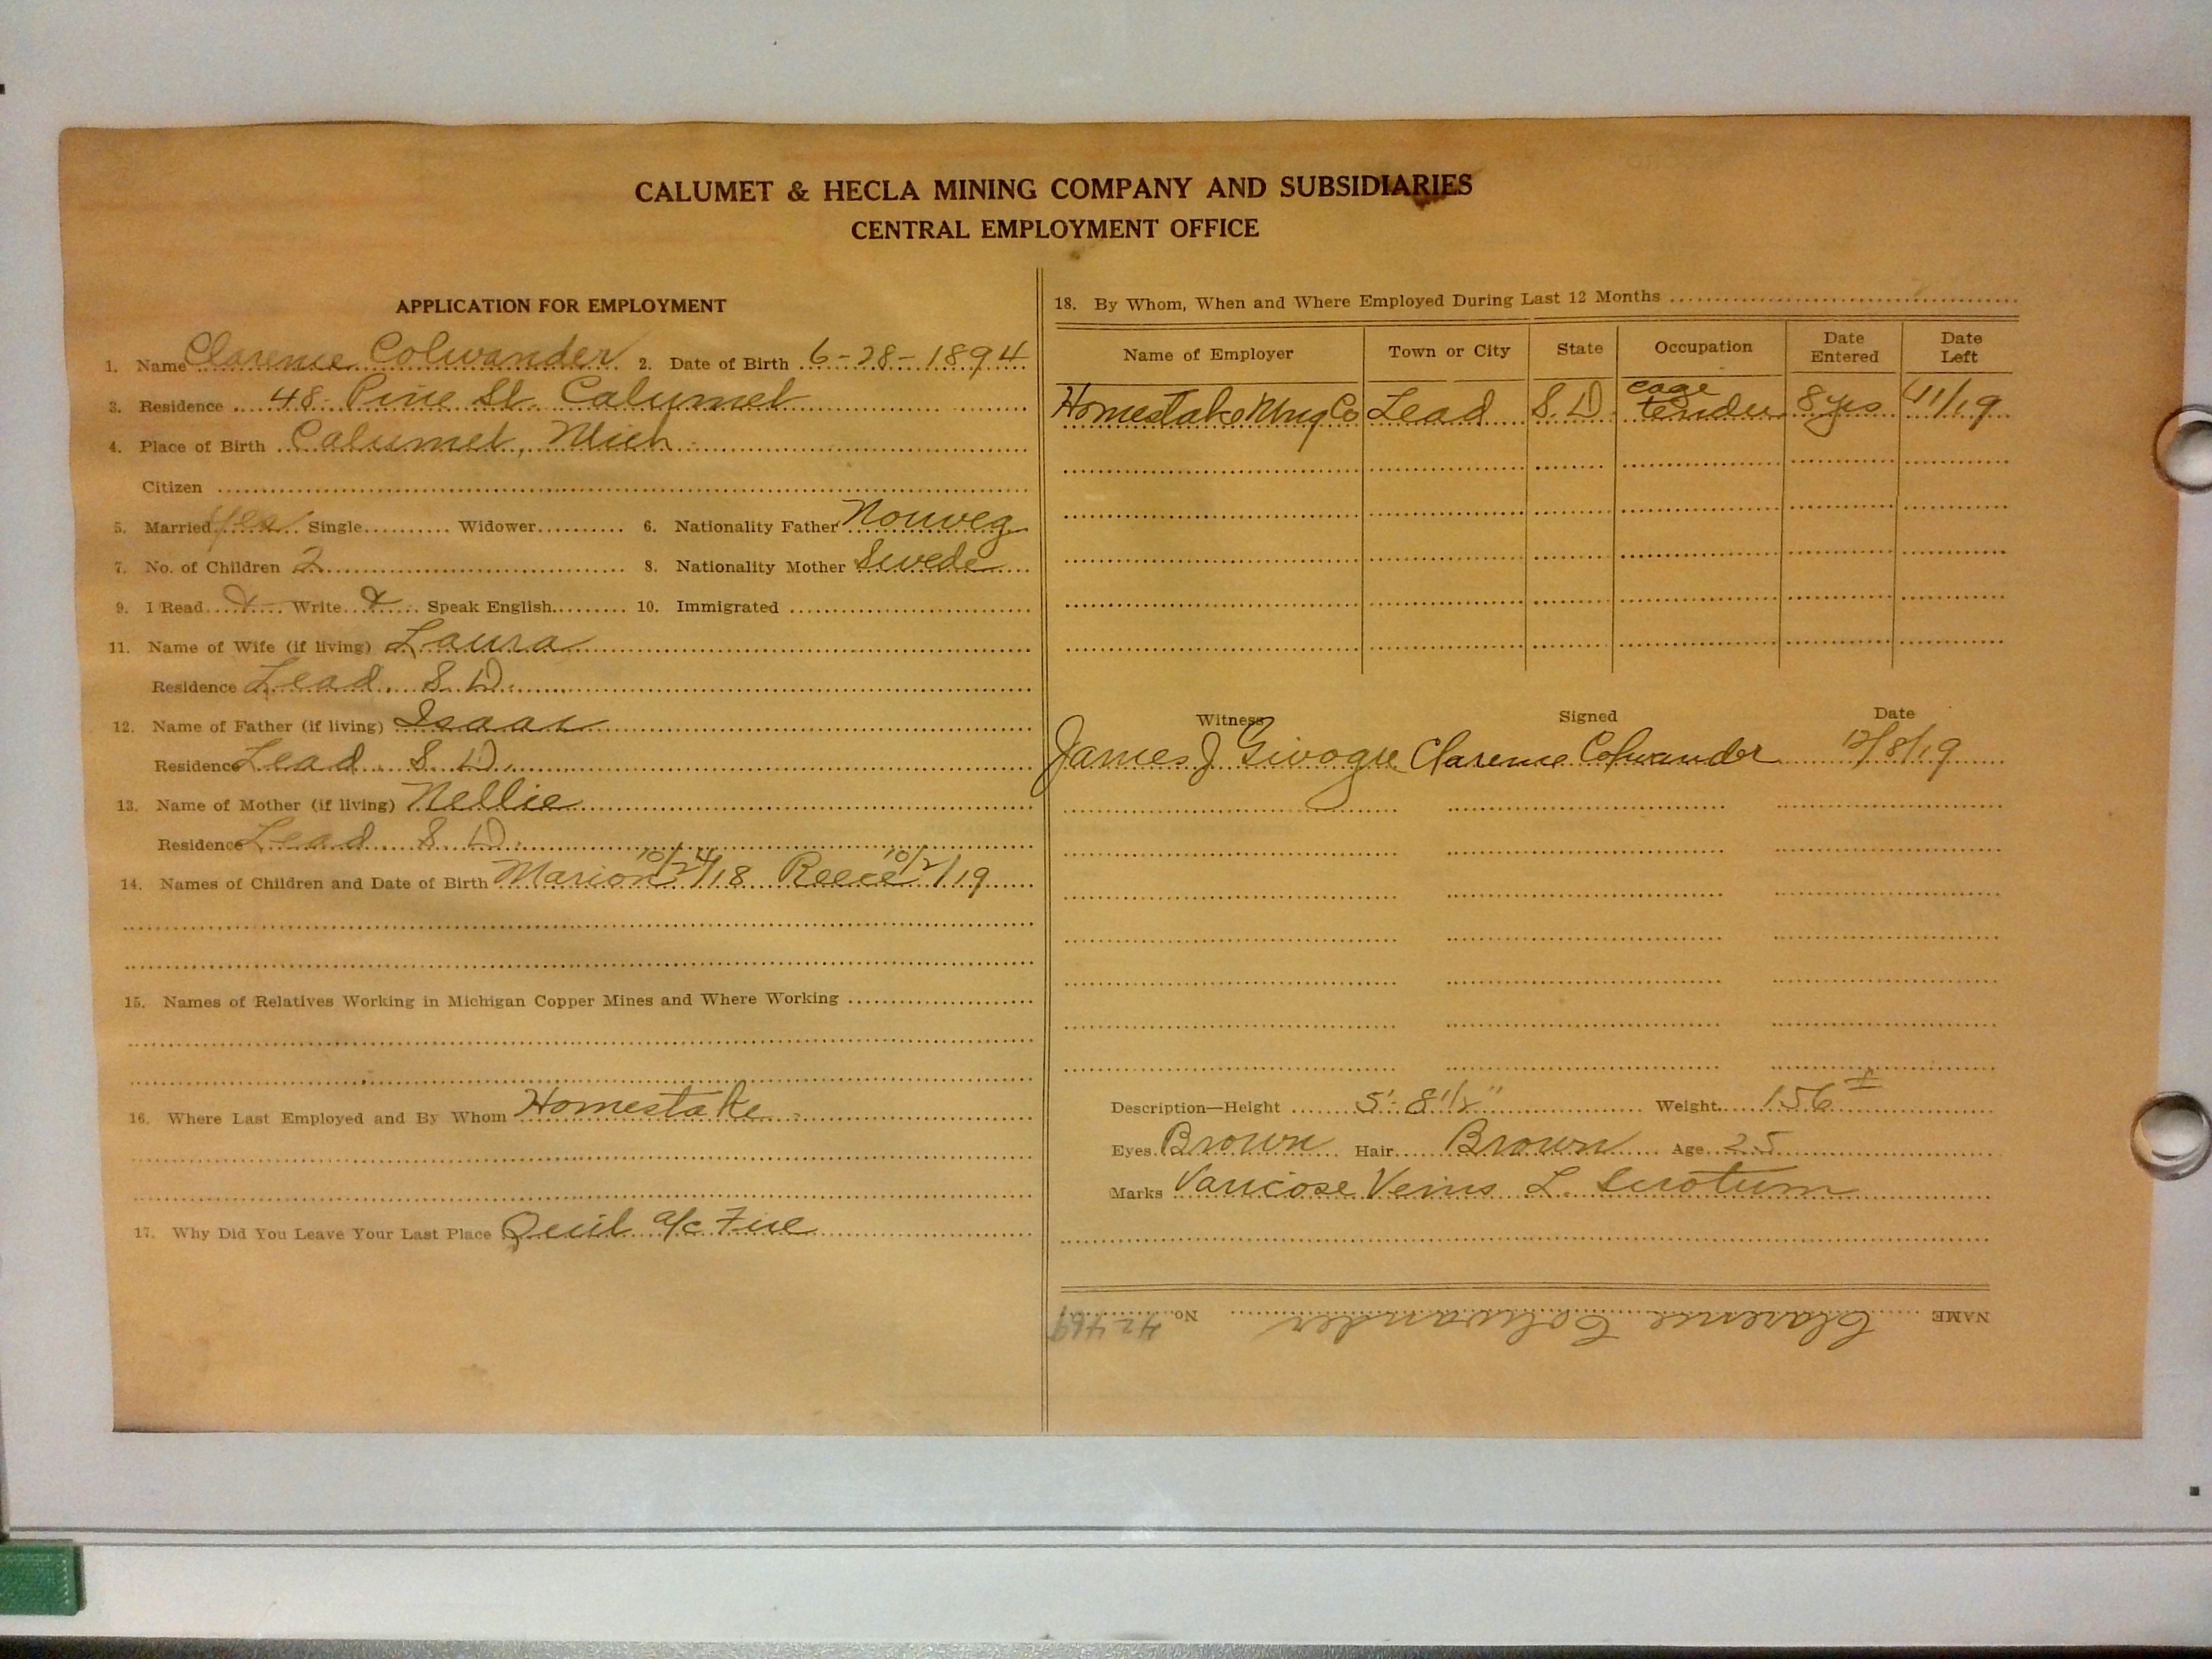 CALUMET & HECLA MINING COMPANY AND SUBSIDIARIES
CENTRAL EMPLOYMENT OFFICE
APPLICATION FOR EMPLOYMENT
1. Name Clarence Colwander 2. Date of Birth 6-28-1894
3. Residence 48 Pine St. Calumet
4. Place of Birth Calumet, Mich
Citizen
5. Married yes Single Widower 6. Nationality Father Norweg
7. No. of Children 2 8. Nationality Mother Swede
9. I Read X Write X Speak English 10. Immigrated
11. Name of Wife (if living) Laura
Residence Lead S. D.
12. Name of Father (if living) Isaac
Residence Lead S. D.
13. Name of Mother (if living) Nellie
Residence Lead S. D.
14. Names of Children and Date of Birth Marion 10/24/18 Reece 10/2/19
15. Names of Relatives Working in Michigan Copper Mines and Where Working
16. Where Last Employed and By Whom Homestake
17. Why Did You Leave Your Last Place Quit a/c Fire
18. By Whom, When and Where Employed During Last 12 Months
Name of Employer Town or City State Occupation Date Entered Date Left
Homestake Mng Co Lead S. D. cage tender 8 yrs 11/19
Witness Signed Date
James J Clarence Colwander 12/8/19
Description—Height 5'-8 1/2" Weight 156
Eyes Brown Hair Brown Age 25
Marks Varicose Veins L. Scrotum
NAME Clarence Colwander No. 42469